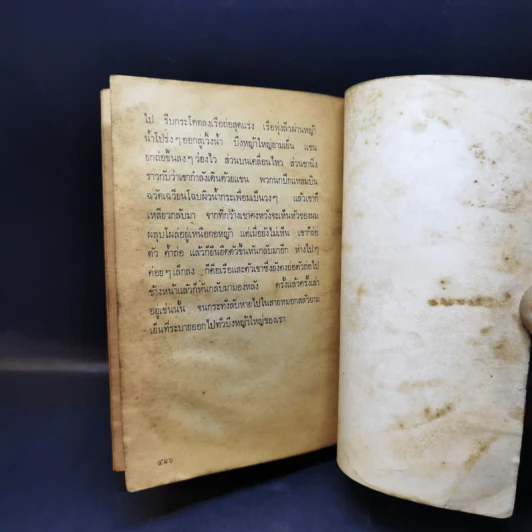 ไป รีบกระโดดลงเรือถ่อสุดแรง เรือพุ่งลิ่วผ่านหญ้า
น้ำโปร่งๆออกสู่เวิ้งน้ำ บึงหญ้าใหญ่ยามเย็น แขน
ยกถ่อขึ้นลงๆว่องไว ส่วนบนเคลื่อนไหว ส่วนขานิ่ง
ราวกับว่าเขากำลังเดินด้วยแขน พวกนกปีกแหลมบิน
ฉวัดเฉวียนโฉบผิวน้ำกระเพื่อมเป็นวงๆ แล้วเขาก็
เหลียวกลับมา จากที่กว้างเขาคงหวังจะเห็นหัวของผม
ผลุบโผล่อยู่เหนือกอหญ้า แต่เมื่อยังไม่เห็น เขาก็ย่อ
ตัว ค้ำถ่อ แล้วก็ยืนยืดตัวขึ้นหันกลับมาอีก ห่างไปๆ
ค่อยๆเล็กลง ก็คือเรือและตัวเขาซึ่งยังคงย่อตัวถ่อไป
ข้างหน้าแล้วก็หันกลับมามองหลัง ครั้งแล้วครั้งเล่า
อยู่เช่นนั้น จนกระทั่งลับหายไปในสายหมอกสลัวยาม
เย็นที่ระบายออกไปทั่วบึงหญ้าใหญ่ของเรา
๔๑๖